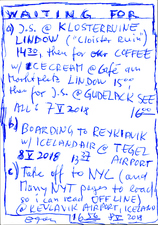 WAITING FOR
a) J.S. @ KLOSTERRUINE,
LINDOW ("Cloister Ruin")
14 30, then for our COFFEE
w/ ICECREAM @ Café am
Marktplatz LINDOW 15
then for J.S. @ GUDELACK SEE
ALL'S 7 V 2018 16 00
b) BOARDING to REYKJAVIK
w/ ICELANDAIR @ TEGEL
8 V 2018 13 AIRPORT
c) Take off to NYC (and
Many NYT pages to read
so i can read OFFLINE)
@ KEVLAVIK AIRPORT, ICELAND
16 8 V 2018